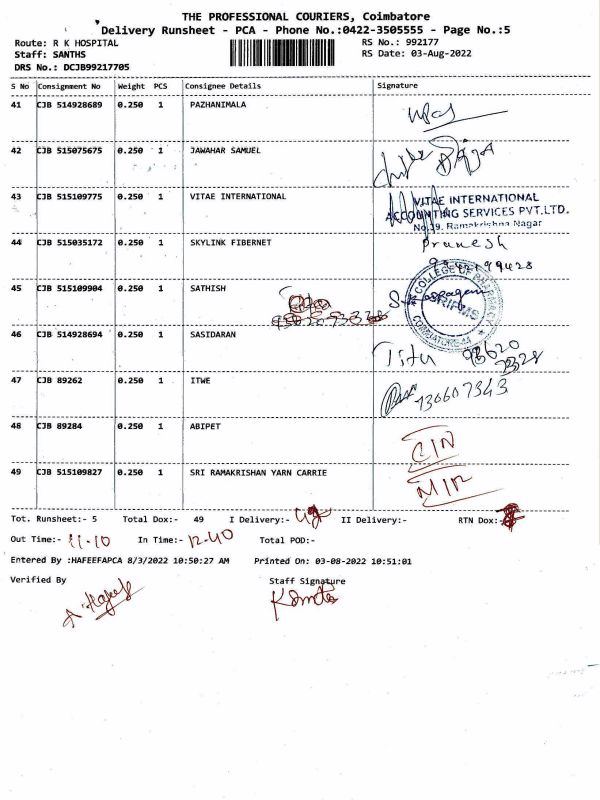 THE PROFESSIONAL COURIERS, Coimbatore
Delivery Runsheet - PCA - Phone No.:0422-3505555 - Page No.:5
Route: R K HOSPITAL RS No.: 992177
Staff: SANTHS RS Date: 03-Aug-2022
DRS No.: DCJB99217705
S No Consignment No Weight PCS Consignee Details Signature
41 CJB 514928689 0.250 1 PAZHANIMALA
42 CJB 515075675 0.250 1 JAWAHAR SAMUEL
43 CJB 515109775 0.250 1 VITAE INTERNATIONAL VITAE INTERNATIONAL
ACCOUNTING SERVICES PVT.LTD.
No.19. Ramakrishna Nagar
44 CJB 515035172 0.250 1 SKYLINK FIBERNET Pranesh
45 CJB 515109904 0.250 1 SATHISH
COLLEGE OF PHARMACY
SRIPMS
COIMBATORE-44
46 CJB 514928694 0.250 1 SASIDARAN
Titu 93620
7328
47 CJB 89262 0.250 1 ITWE
130607343
48 CJB 89284 0.250 1 ABIPET
CIN
49 CJB 515109827 0.250 1 SRI RAMAKRISHAN YARN CARRIE
Tot. Runsheet:- 5 Total Dox:- 49 I Delivery:- II Delivery:- RTN Dox:-
Out Time:- 11-10 In Time:- 12-40 Total POD:-
Entered By :HAFEEFAPCA 8/3/2022 10:50:27 AM Printed On: 03-08-2022 10:51:01
Verified By Staff Signature